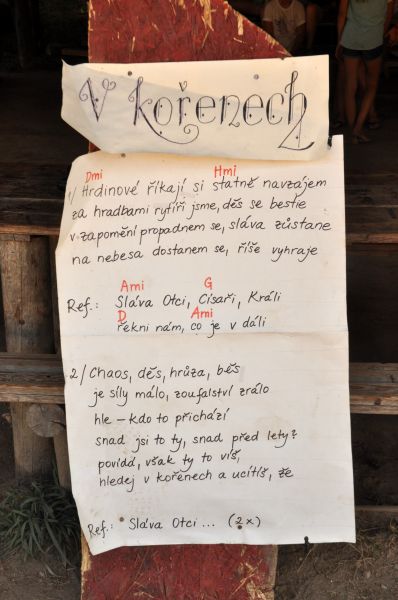 V kořenech
Dmi Hmi
1/ Hrdinové říkají si statně navzájem
za hradbami rytíři jsme, děs se bestie
v zapomění propadnem se, sláva zůstane
na nebesa dostanem se, říše vyhraje
Ami G
Ref.: Sláva Otci, Císaři, Králi
D Ami
řekni nám, co je v dáli
2/ Chaos, děs, hrůza, běs
je síly málo, zoufalství zrálo
hle – kdo to přichází
snad jsi to ty, snad před lety?
povídá, však ty to víš,
hledej v kořenech a ucítíš, že
Ref.: Sláva Otci ... (2x)